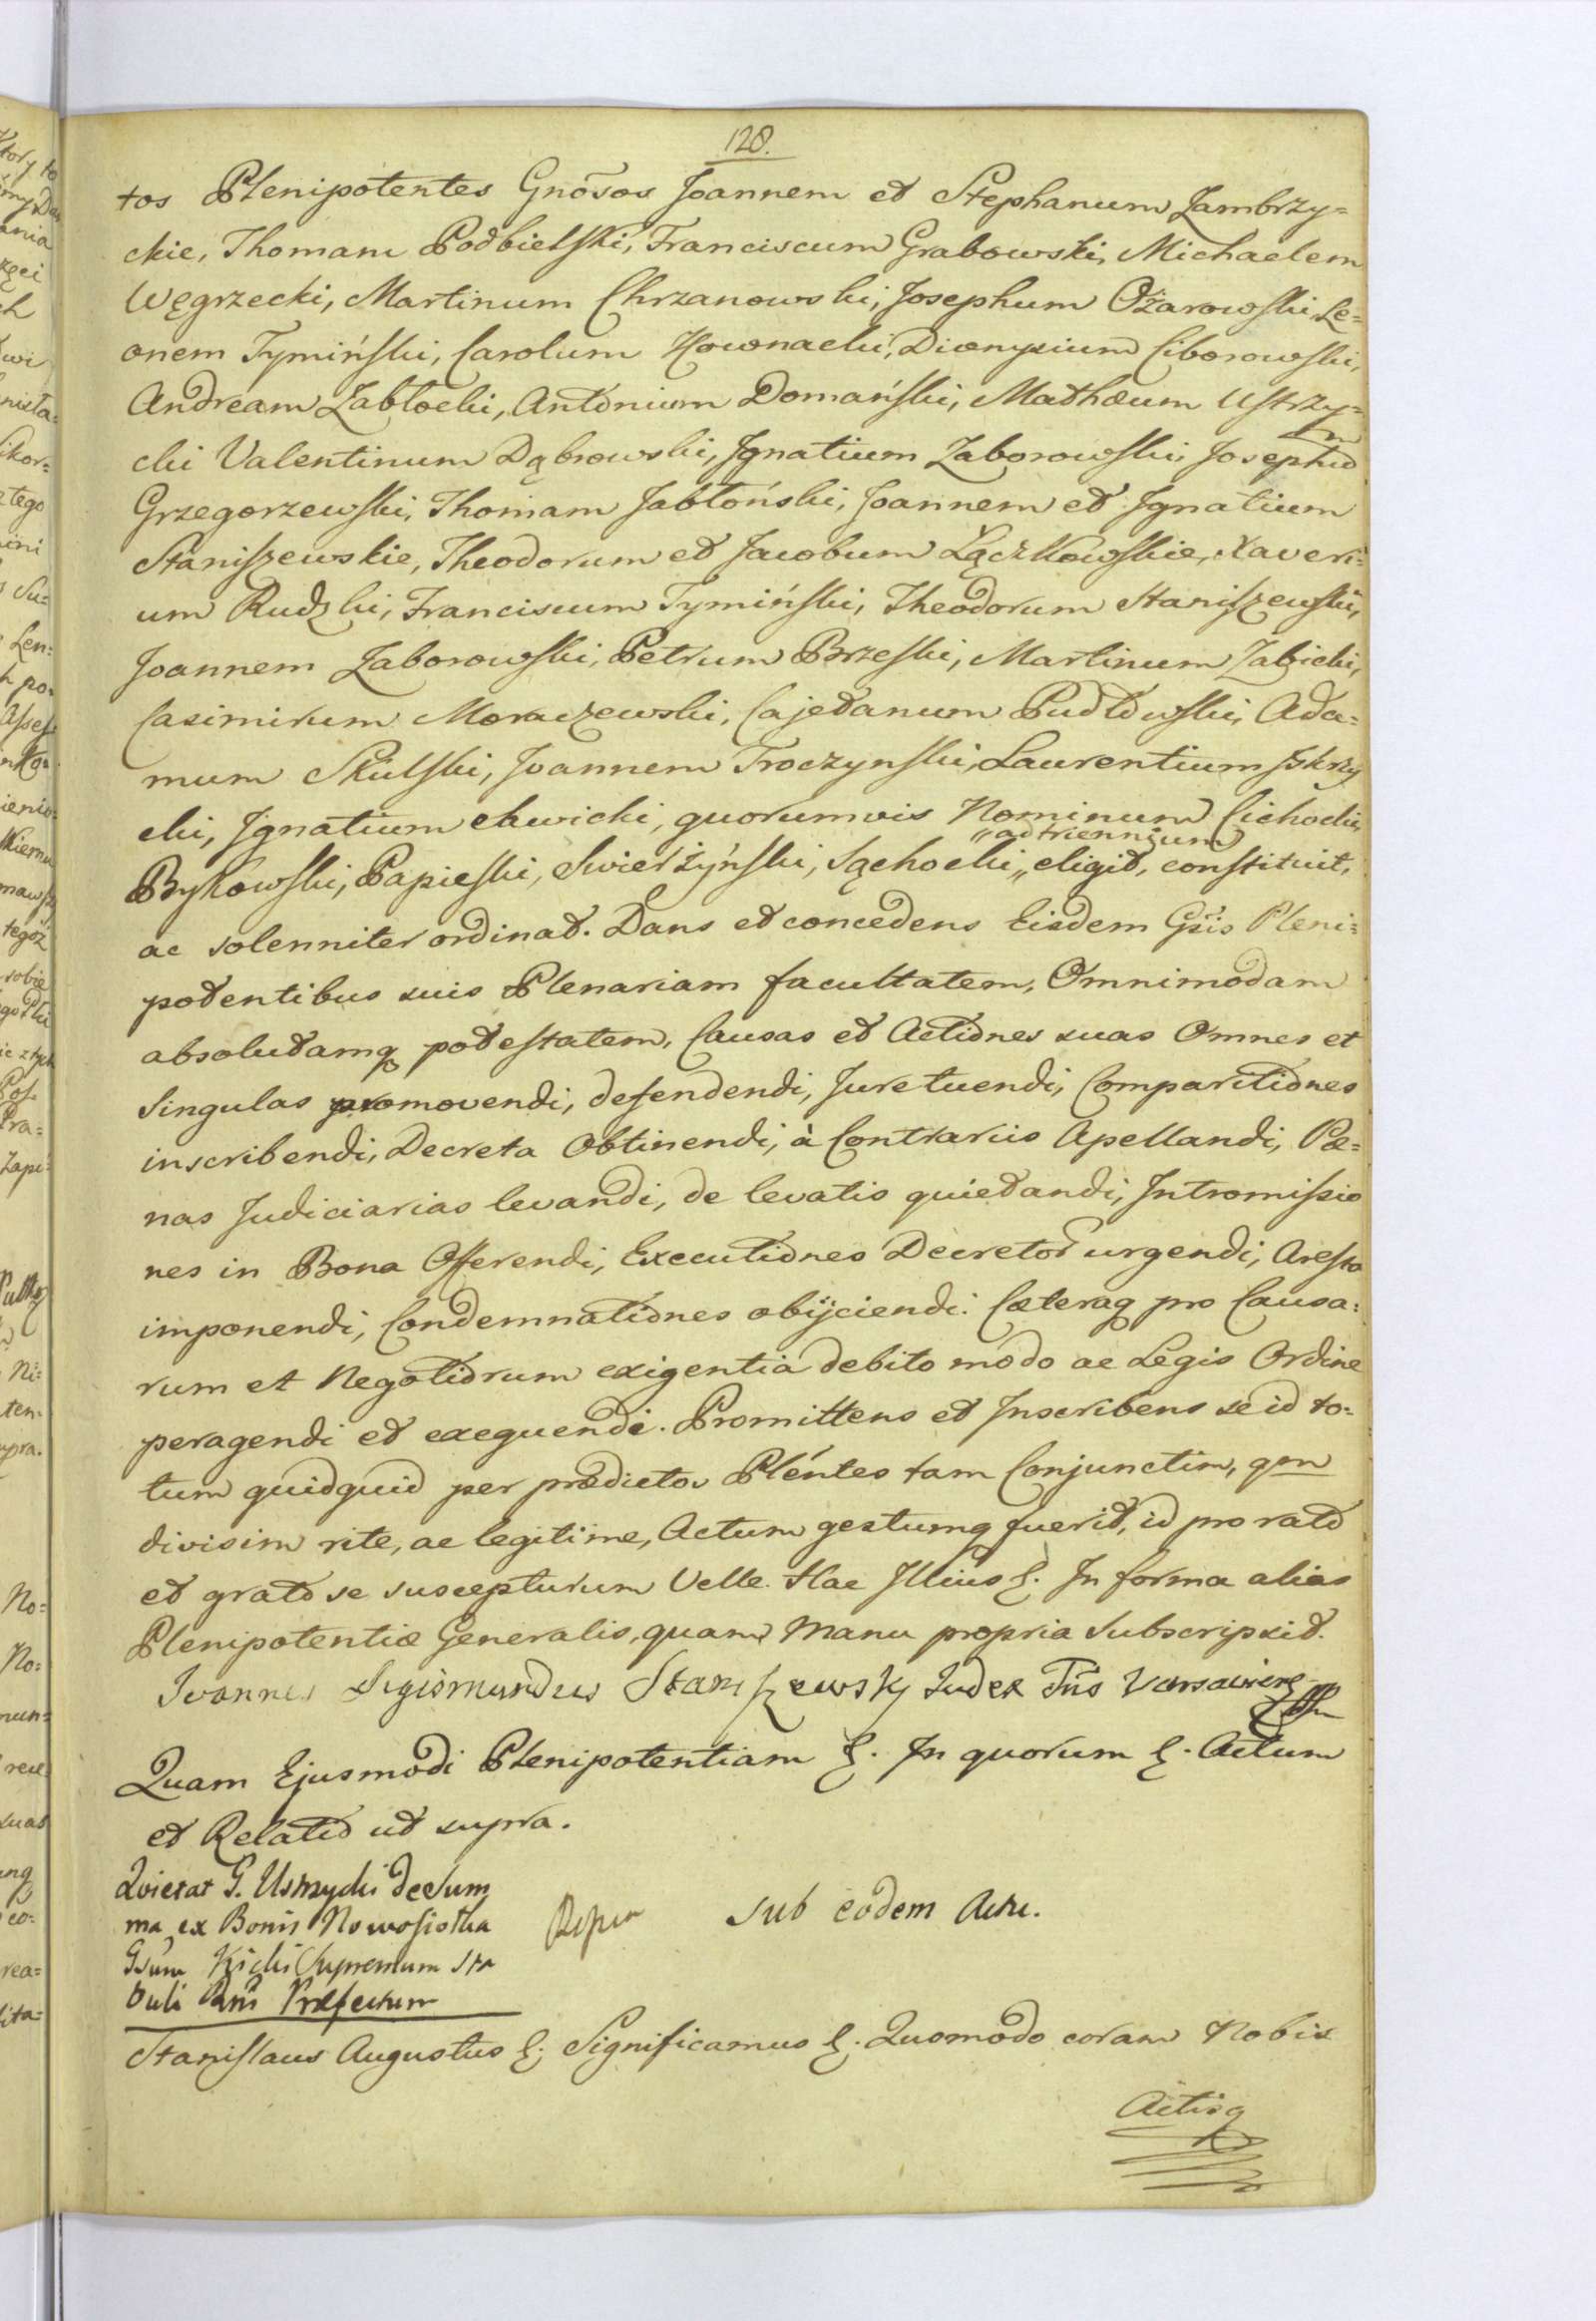 128.
tos Plenipotentes Gnõsos Joannem et Stephanum Zambrzy=
ckie, Thomam Podbielski, Franciscum Grabowski, Michaelem
Węgrzecki, Martinum Chrzanowski, Josephum Ożarowski, Le=
onem Tymiński, Carolum Kownacki, Dionysium Ciborowski,
Andream Zabłocki, Antonium Domański, Mathæum Ustrzy=
cki Valentinum Dąbrowski, Ignatium Zaborowski, Josephum
Grzegorzewski, Thomam Jabłoński, Joannem et Ignatium
Staniszewskie, Theodorum et Jacobum Łączkowskie, Xaveri=
um Rudzki, Franciscum Tymiński, Theodorum Staniszewski,
Joannem Zaborowski, Petrum Brzeski, Martinum Zabicki,
Casimirum Moraczewski, Cajetanum Pudłowski, Ada=
mum Skulski, Joannem Troczynski, Laurentium Iskrzy
cki, Ignatium Lewicki, quorumvis Nominum Cichocki,
„ad triennium
Bykowski, Papieski, Swierżyński, Sąchocki „ eligit, constituit,
ac solenniter ordinat. Dans et concedens Eisdem Gsis Pleni=
potentibus suis Plenariam facultatem, Omnimodam
absolutamq potestatem, Causas et Actiones suas Omnes et
Singulas promovendi, defendendi, Jure tuendi, Comparitiones
inscribendi, Decreta Obtinendi, à Contrariis Apellandi, Pæ=
nas Judiciarias levandi, de levatis quietandi, Intromissio
nes in Bona Offerendi, Executiones Decretor urgendi, Aresta
imponendi, Condemnationes obijciendi. Cæteraq pro Causa=
rum et Negotiorum exigentia debito modo ac Legis Ordine
peragendi et exequendi. Promittens et Inscribens se id to=
tum quidquid per prædictos Pléntes tam Conjunctim, qm
divisim rite, ac legitime, Actum gestumq fuerit, id pro rato
et grato se suscepturum Velle. Hac Illius &. In forma alias
Plenipotentiæ Generalis, quam Manu propria Subscripsit.
Ioannes Sigismundus Staniszewsky Judex Tris Varsavien
Quam Ejusmodi Plenipotentiam &. In quorum &. Actum
et Relatio ut supra.
Qvietat G. Ustrzycki de Sum
ma ex Bonis Nowosiołka
Gsum Kicki Supremum Sta
buli Rni Præfectum
Sub eodem Actu.
Stanislaus Augustus &. Significamus &. Quomodo coram Nobis
Actisq